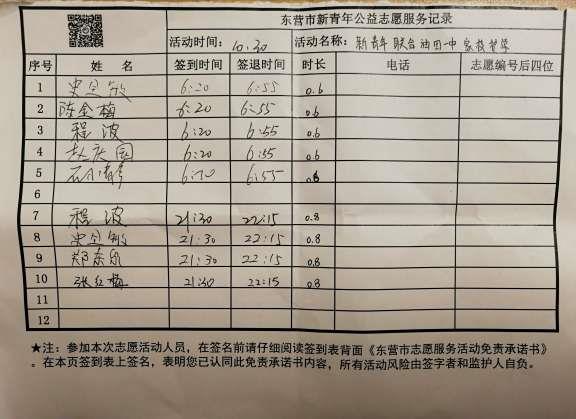 东营市新青年公益志愿服务记录
活动时间: 10.30 活动名称: 新青年联合油田一中家校警学
序号 姓名 签到时间 签退时间 时长 电话 志愿编号后四位
1 6:20 6:55 0.6
2 陈金梅 6:20 6:55 0.6
3 程波 6:20 6:55 0.6
4 赵庆国 6:20 6:55 0.6
5 6:20 6:55 0.6
6
7 程波 21:30 22:15 0.8
8 21:30 22:15 0.8
9 21:30 22:15 0.8
10 张红梅 21:30 22:15 0.8
11
12
★注：参加本次志愿活动人员，在签名前请仔细阅读签到表背面《东营市志愿服务活动免责承诺书》
。在本页签到表上签名，表明您已认同此免责承诺书内容，所有活动风险由签字者和监护人自负。